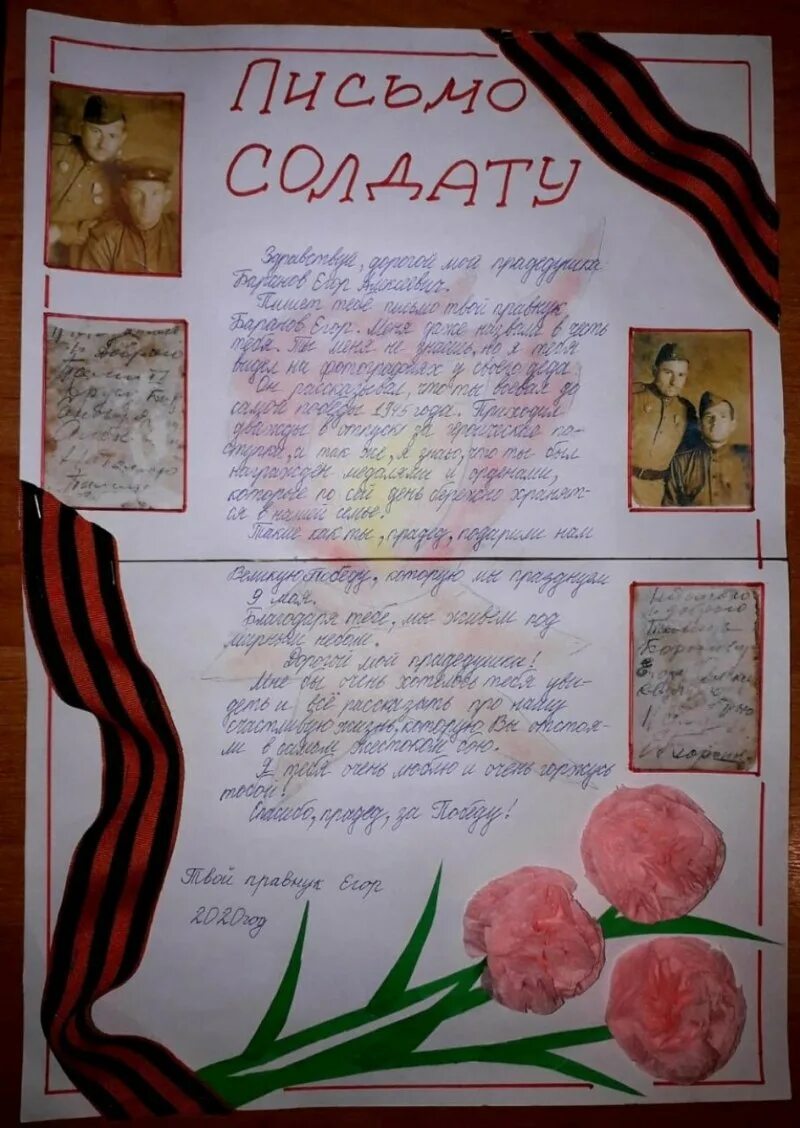 ПИСЬМО
СОЛДАТУ
Здравствуй, дорогой мой прадедушка
Баранов Егор Алексеевич.
Пишет тебе письмо твой правнук
Баранов Егор. Меня даже назвали в честь
тебя. Ты меня не знаешь, но я тебя
видел на фотографиях у своего деда.
Он рассказывал, что ты воевал до
самой победы 1945 года. Приходил
дважды в отпуск за героические по-
ступки, а так же, я знаю, что ты был
награжден медалями и орденами,
которые по сей день бережно хранят-
ся в нашей семье.
Такие как ты, прадед, подарили нам
Великую Победу, которую мы празднуем
9 мая.
Благодаря тебе, мы живём под
мирным небом.
Дорогой мой прадедушка!
Мне бы очень хотелось тебя уви-
деть и всё рассказать про нашу
счастливую жизнь, которую Вы отстоя-
ли в самом жестоком бою.
Я тебя очень люблю и очень горжусь
тобой!
Спасибо, прадед, за Победу!
Твой правнук Егор
2020год